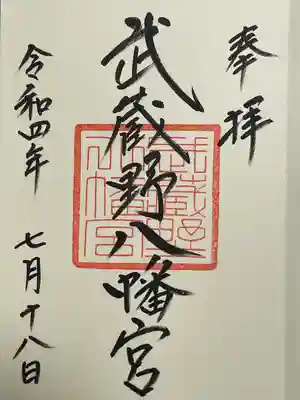 奉拝
武蔵野八幡宮
令和四年 七月十八日
武蔵野八幡宮